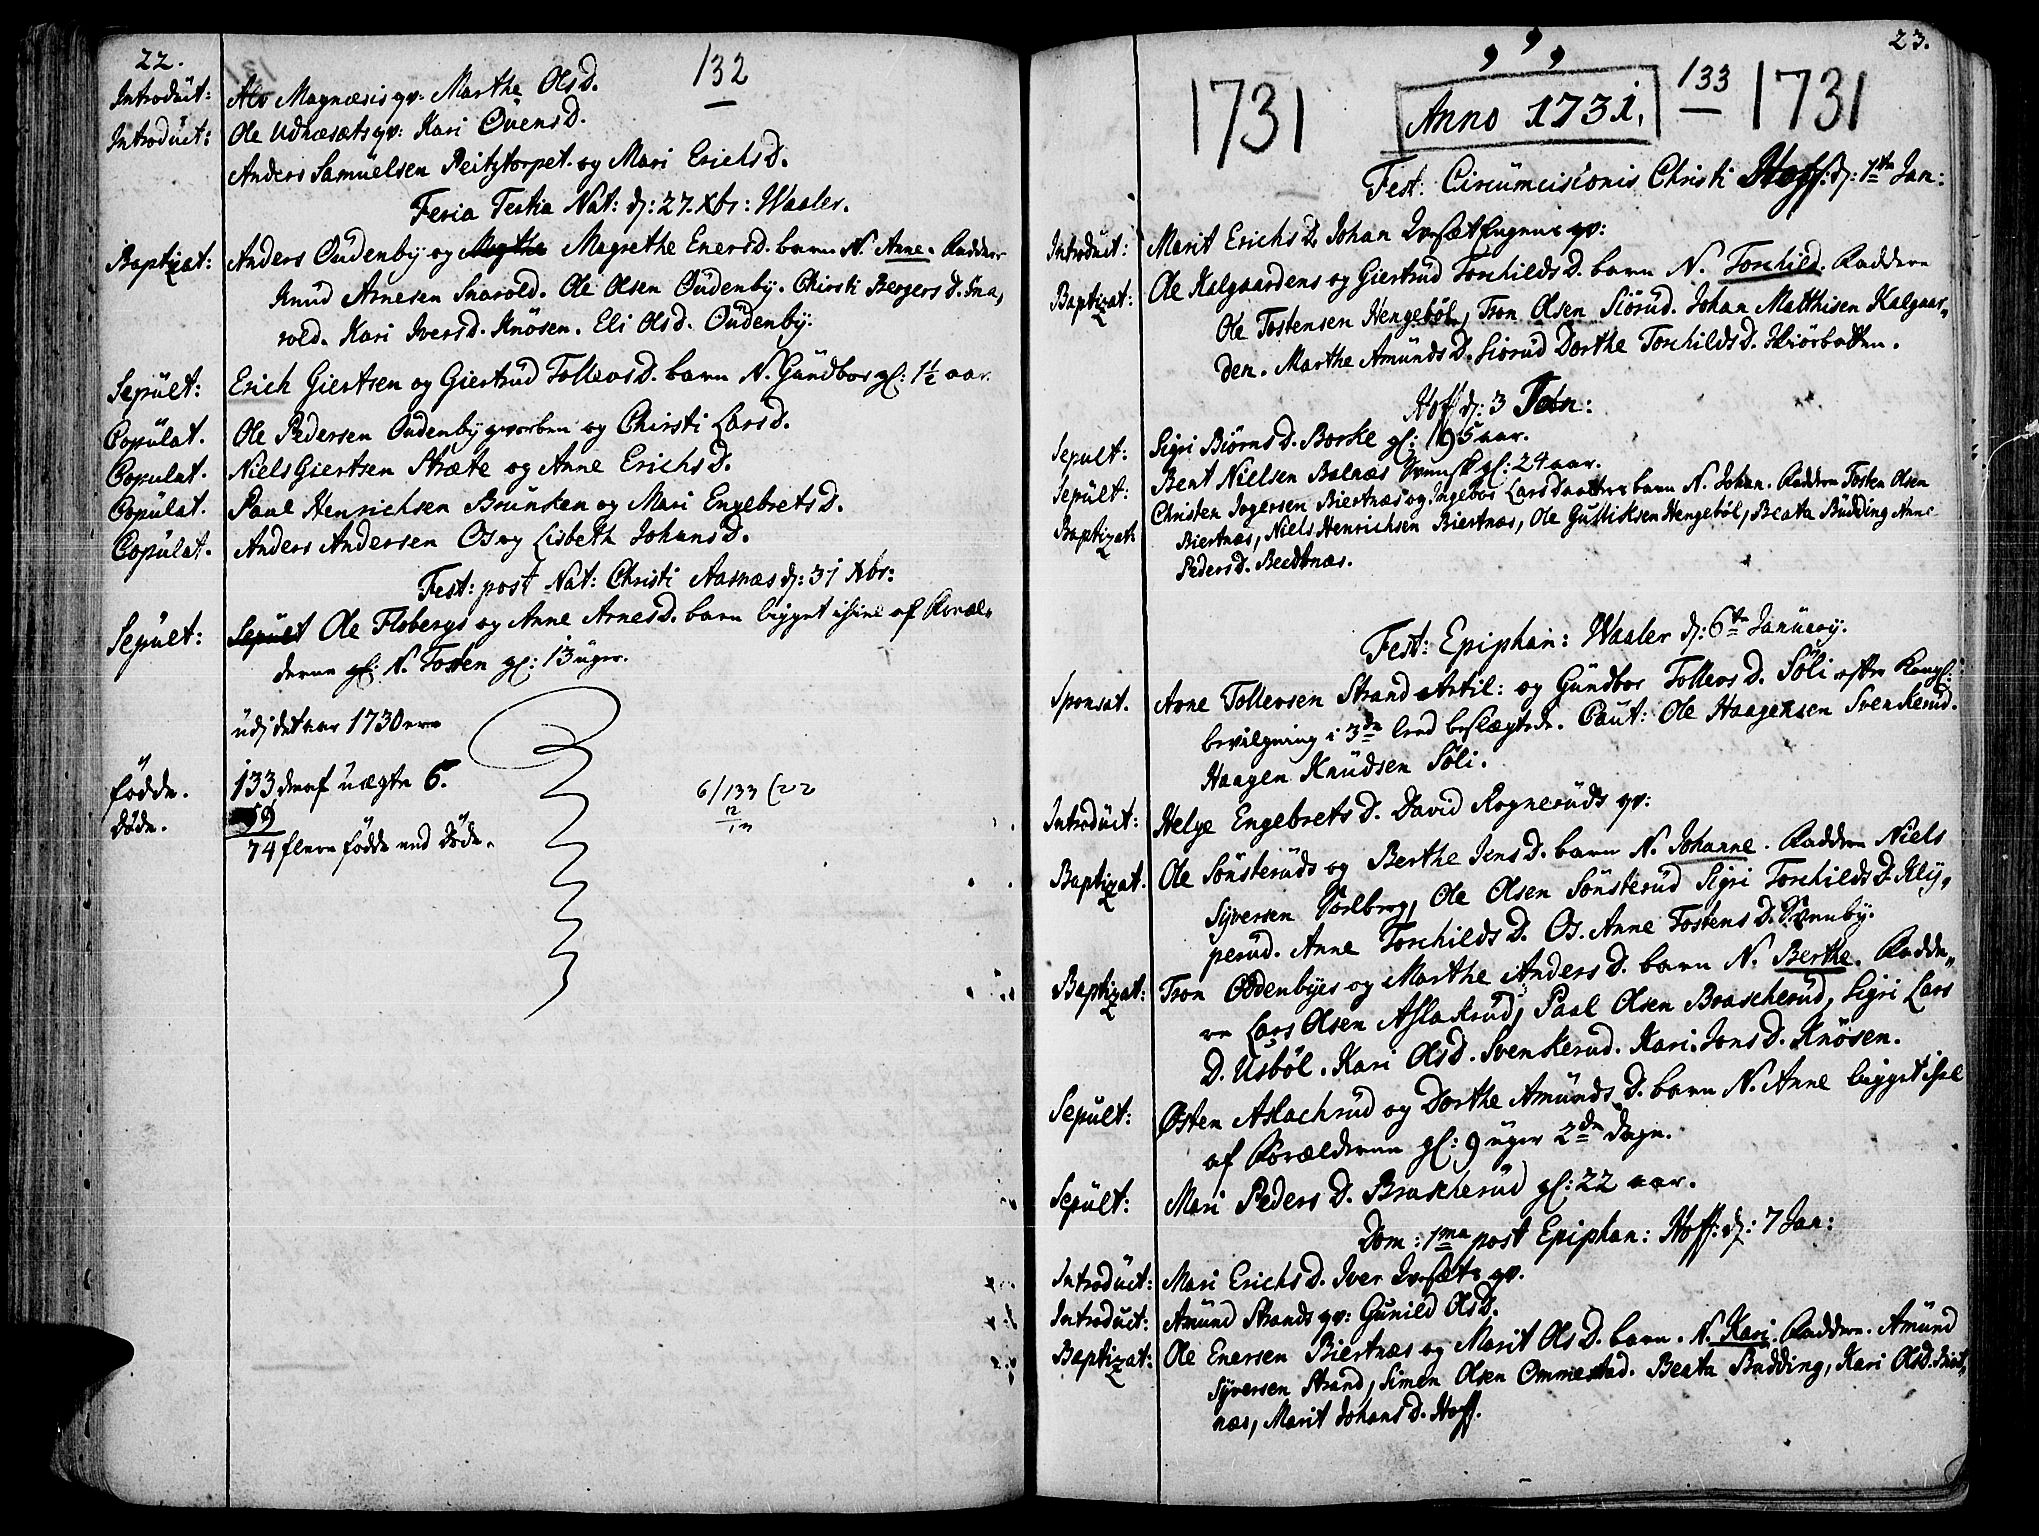 22.
132
Introdüit: Alv Magnæsis qv: Marthe Ols D.
Introdüit: Ole Udnæsæts qv: Kari Øvens D.
Anders Samüelsen Peitztorpet og Mari Erichs D.
Feria Tertia Nat: d: 27. Xbr: Waaler.
Baptizat: Anders Oüdenbÿ og Magrethe Eners D. barn N. Anne. Faddere
Knüd Arnesen Snarold. Ole Olsen Oüdenbÿ. Chirsti Bergers D. Sna,
rold. Kari Ivers D. Knösen. Eli Ols D. Oüdenbÿ.
Sepült: Erich Giertsen og Giertrüd Tollevs D. barn N. Gündbor gl: 1½ aar.
Copülat. Ole Pedersen Oudenbÿ qvarben og Chirsti Lars D.
Copulat. Niels Giertsen Stræte og Anne Erichs D.
Copülat. Paul Henrichsen Brünken og Mari Engebrets D.
Copülat. Anders Andersen Os og Lisbeth Johans D.
Fest: post Nat: Christi Aasnæs d: 31 Xbr:
Sepült: Sepült Ole Flobergs og Anne Arnes D. barn ligget ihiel af Foræl,
derne gl: N. Tosten gl: 13 üger.
üdj det aar 1730 ere
födde. 133 deraf üægte 6.
döde. 59
74 flere födde end döde.
6/133 (22
12
13
23.
1731 Anno 1731. 133 1731
Fest: Circümcisionis Christi Hoff: d: 1te Jan:
Introdüit: Marit Erichs D. Johan Qvesæt Eugene qv:
Baptizat: Ole Kalgaardens og Giertrüd Torchilds D. barn N. Torchild. Faddere
Ole Tostensen Hengeböl, Tron Olsen Siörüd. Johan Matthisen Kalgaar,
den. Marthe Amünds D. Siorüd Dorthe Torchilds D. Kiörbotten.
Hoff d: 3 Jan:
Sepült: Sigri Biörns D. Borke gl: 195 aar.
Sepült: Bent Nielsen Balnæs Svensk gl: 24 aar.
Baptizat: Christen Jogersen Biertnæs og Ingebor Larsdaatters barn N. Johan. Faddere Tosten Olsen
Biertnæs, Niels Henrichsen Biertnæs, Ole Gulliksen Hengeböl, Beata Büdding Anne
Peders D. Beedtnæs.
Fest: Epiphan: Waaler d: 6te Januarÿ.
Sponsat. Arne Tollevsen Strand Artil: og Gündbor Tollevs D. Söli efter Kongl:
bevilgning i 3de leed beslægtede. Caut: Ole Haagensen Svenkerud.
Haagen Knüdsen Söli.
Introdüit: Helge Engebrets D. David Rognerüds qv:
Baptizat. Ole Sönsterüds og Berthe Jens D. barn N. Johanne. Faddere Niels
Sÿversen Vorlberg, Ole Olsen Sönsterüd Sigri Torchilds D. Klÿ,
perüd. Anne Torchilds D. Os. Anne Tostens D. Svennbÿ.
Baptizat: Tron Oddenbÿes og Marthe Anders D. barn N. Berthe. Fadde,
re Lars Olsen Aslakrüd, Paal Olsen Braskerüd, Sigri Lars
D. Usböl. Kari Ols D. Svenkerud. Kari Jons D. Knösen.
Sepült: Østen Aslachrüd og Dorthe Amünds D. barn N. Anne ligget ihiel
af Forælderne gl: 9 üger 2de dage.
Sepült: Mari Peders D. Braskerüd gl: 22 aar.
Dom: 1ma post Epiphan: Hoff: d: 7 Jan:
Introdüit: Mari Erichs D. Iver Qvesæts qv.
Introduit: Amünd Strands qv: Gunild Ols D.
Baptizat: Ole Enersen Biertnæs og Marit Ols D. barn. N. Kari. Faddere. Amünd
Sÿversen Strand, Simen Olsen Ommestad. Beata Büdding, Kari Ols D. Biert,
næs, Marit Johans D. Hoff.